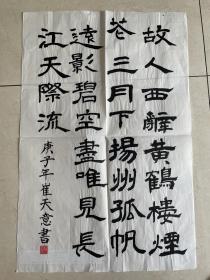 故人西辭黃鶴樓煙
花三月下揚州孤帆
遠影碧空盡唯見長
江天際流
庚子年崔天意書